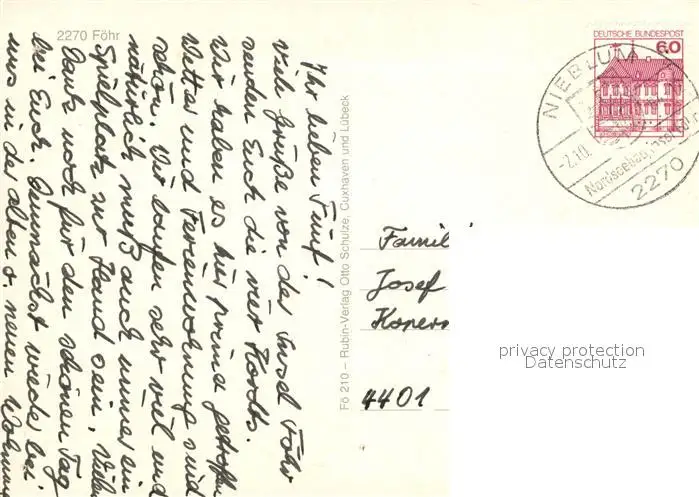 2270 Föhr
Ihr lieben Fünf!
Viele Grüße von der Insel Föhr
senden Euch die vier Hardts.
Wir haben es hier prima getroffen
Wetter und Ferienwohnung sind
schön. Wir laufen sehr viel und
natürlich muß auch immer ein
Spielplatz zur Hand sein. Vielen
Dank noch für den schönen Tag
bei Euch. Demnächst wieder bei
uns in der alten o. neuen Wohnun
Fö 210 – Rubin-Verlag Otto Schulze, Cuxhaven und Lübeck
DEUTSCHE BUNDESPOST
60
NIEBLUM
-2.10.
Nordseebad
2270
Famili
Josef
Kopern
4401
privacy protection
Datenschutz